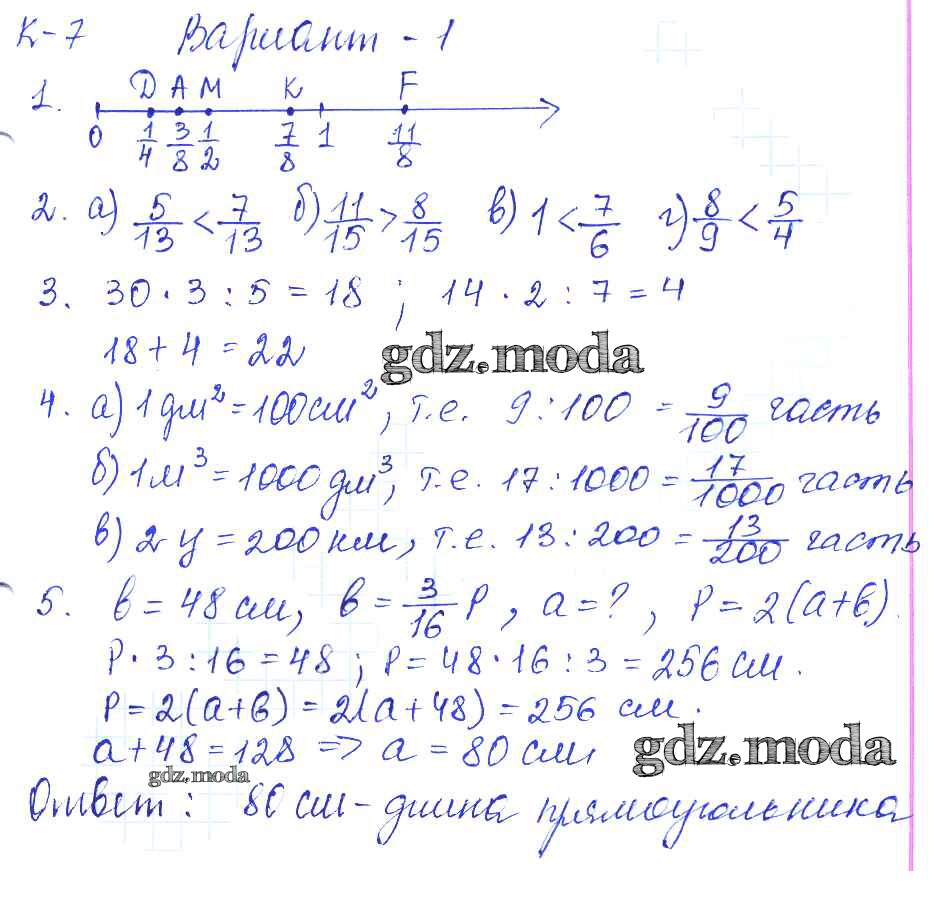 К-7 Вариант - 1
1. D A M K F
0 1/4 3/8 1/2 7/8 1 11/8
2. а) 5/13 < 7/13 б) 11/15 > 8/15 в) 1 < 7/6 г) 8/9 < 5/4
3. 30 · 3 : 5 = 18 ; 14 · 2 : 7 = 4
18 + 4 = 22 gdz.moda
4. а) 1 дм² = 100 см², т.е. 9 : 100 = 9/100 часть
б) 1 м³ = 1000 дм³, т.е. 17 : 1000 = 17/1000 часть
в) 2 ц = 200 км, т.е. 13 : 200 = 13/200 часть
5. в = 48 см, в = 3/16 P, a = ?, P = 2(a+в).
P · 3 : 16 = 48 ; P = 48 · 16 : 3 = 256 см.
P = 2(a+в) = 2(a+48) = 256 см.
a + 48 = 128 => a = 80 см gdz.moda
gdz.moda
Ответ : 80 см - длина прямоугольника